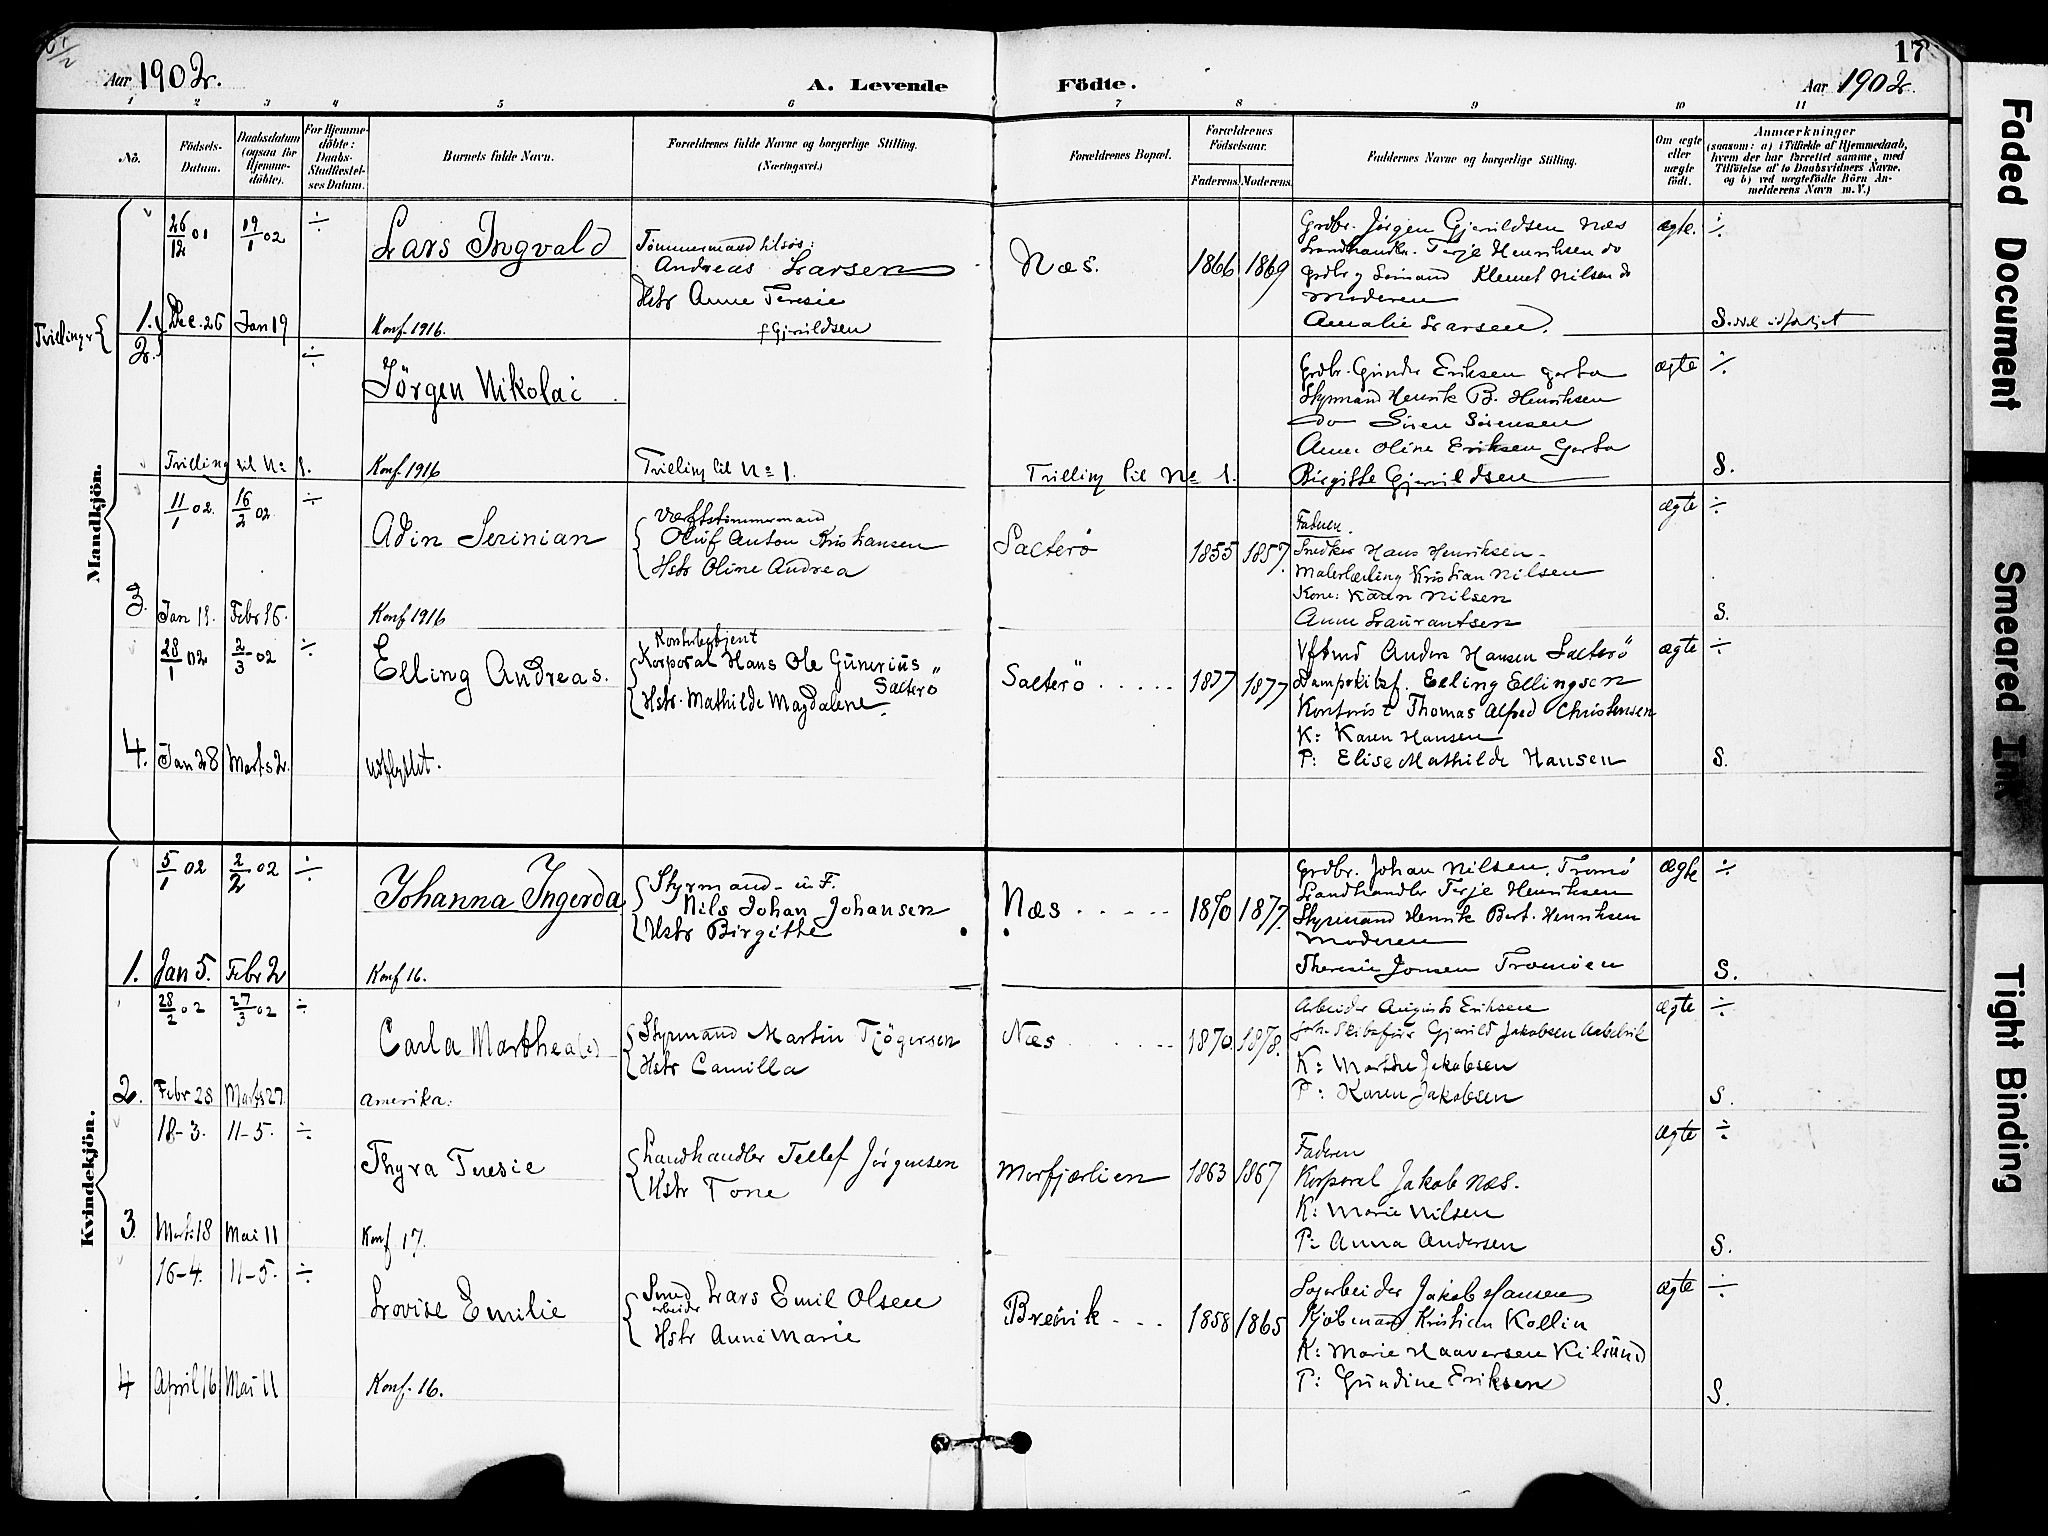 17
Aar 1902.
A. Levende Födte.
Aar 1902.
1 2 3 4 5 6 7 8 9 10 11
No.
Födsels-
Datum.
Daabsdatum
(ogsaa for
Hjemme-
döbte).
For Hjemme-
döbte:
Daabs-
Stadfæstel-
ses Datum.
Barnets fulde Navn.
Forældrenes fulde Navne og borgerlige Stilling.
(Næringsvei.)
Forældrenes Bopæl.
Forældrenes
Födselsaar.
Faderens. Moderens.
Faddernes Navne og borgerlige Stilling.
Om ægte
eller
uægte
födt.
Anmærkninger
(saasom: a) i Tilfælde af Hjemmedaab,
hvem der har forrettet samme, med
Tilföielse af to Daabsvidners Navne,
og b) ved uægtefödte Börn An-
melderens Navn m. V.)
Mandkjön.
Tvillinger
1.
26/12 01
19/1 02
÷
Dec. 26
Jan 19
Lars Ingvald
Konf. 1916.
Tømmermand tilsøs:
Andreas Larsen
Hstr Anne Teresie
f Gjerüldsen
Næs.
1866 1869
Grdbr. Jørgen Gjerüldsen Næs
Landhandlr. Terje Henriksen do
Grdbr og Sømand Klemet Nilsen do
Moderen
Amalie Larsen.
ægte.
÷
S.
2.
÷
Tvilling til No 1.
Jörgen Nikolai
Konf. 1916
Tvilling til No 1.
Tvilling til No 1.
Grdbr. Gunder Eriksen Garta
Styrmand Henrik B. Henriksen
do Sören Sörensen
Anne Oline Eriksen Garta
Birgitte Gjerüldsen
ægte
÷
S.
3.
11/1 02.
16/2 02.
÷
Jan 11.
Febr 16.
Adin Serinian
Konf 1916
Værftstømmermand
Oluf Anton Kristiansen
Hstr Oline Andrea
Salterö
1855 1857.
Faderen.
Snedker Hans Henriksen
Malerlærling Kristian Nilsen
Kone: Karen Nilsen
Anne Laurantsen
ægte
÷
S.
4.
28/1 02
2/3 02
÷
Jan 28
Marts 2.
Elling Andreas.
udflyttet.
Kontorbetjent
Korporal Hans Ole Gunerius
Salterö
Hstr. Mathilde Magdalene
Salterö
1877 1877
Anders Hansen Salterö
Elling Ellingsen
Kontorist Thomas Alfred Christensen
K: Karen Hansen
P: Elise Mathilde Hansen
ægte
÷
S.
Kvindekjön.
1.
5/1 02
2/2 02
÷
Jan 5.
Febr 2
Johanna Ingerda
Konf 16.
Styrmand
Nils Johan Johansen
Hstr Birgithe
Næs
1870 1877.
Grdbr. Johan Nilsen, Tromö
Landhandler Terje Henriksen
Styrmand Henrik Bert. Henriksen
Moderen
Theresie Jonsen Tromöen
Ægte
÷
S.
2.
28/2 02
27/3 02
÷
Febr 28
Marts 27
Carla Marthea(e)
Amerika.
Styrmand Martin Tjögersen
Hstr Camilla
Næs
1870. 1878.
Arbeider August Eriksen
Skibsfür Gjerüld Jakobsen
K: Marthe Jakobsen
P: Karen Jakobsen
Ægte
÷
S.
3.
18-3.
11-5.
÷
Marts 18
Mai 11
Thyra Teresie
Konf 17.
Landhandler Tellef Jørgensen
Hstr Tone
Morfjærlien
1863 1867
Faderen
Korporal Jakob Næs.
K: Marie Nilsen
P: Anna Andersen
Ægte
÷
S.
4
16-4.
11-5.
÷
April 16
Mai 11
Lovise Emilie
Konf. 16.
Smed
arbeider Lars Emil Olsen
Hstr Anne Marie
Brevik
1858 1865
Sagarbeider Jakob Hansen
Kjöbmand Kristian Kollin
K: Marie Haaversen Kilsünd
P: Gundine Eriksen
Ægte
÷
S.
Faded Document
Smeared Ink
Tight Binding